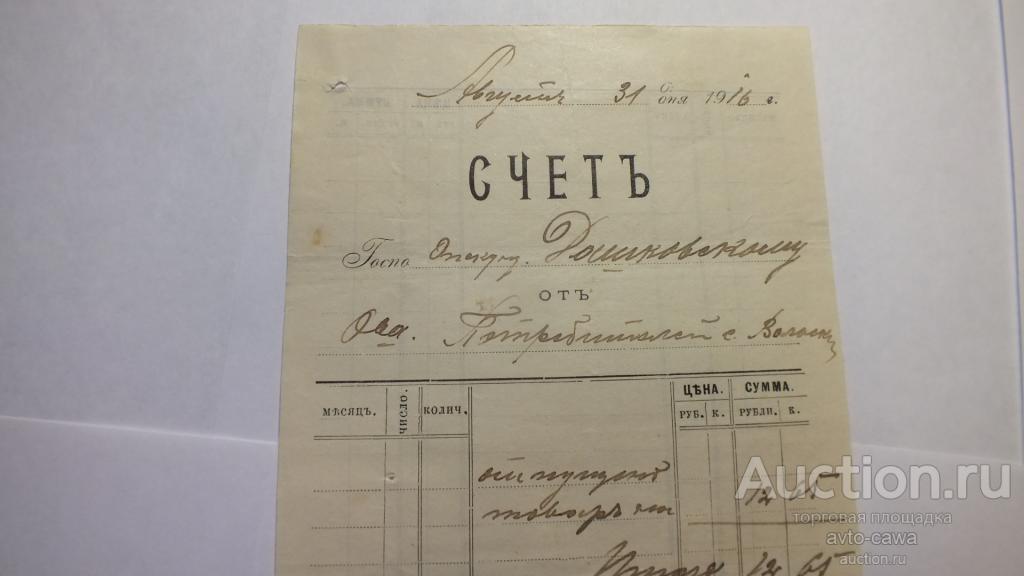 Августа 31 дня 1916 г.
СЧЕТЪ
Госпо Опекуну. Дашковскому
отъ
Ова. Потребителей с. Волоски
МѢСЯЦЪ. ЧИСЛО. КОЛИЧ. ЦѢНА. СУММА.
РУБ. К. РУБЛИ. К.
отпущено
товаръ на 12 65
Итого 12 65
Auction.ru
торговая площадка
avto-cawa
auction.ru